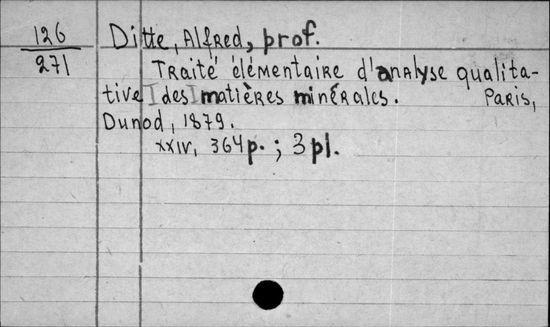 126
271
Ditte, Alfred, prof.
Traité élémentaire d'analyse qualita-
tive des matières minérales. Paris,
Dunod, 1879.
XXIV, 364 p. ; 3 pl.